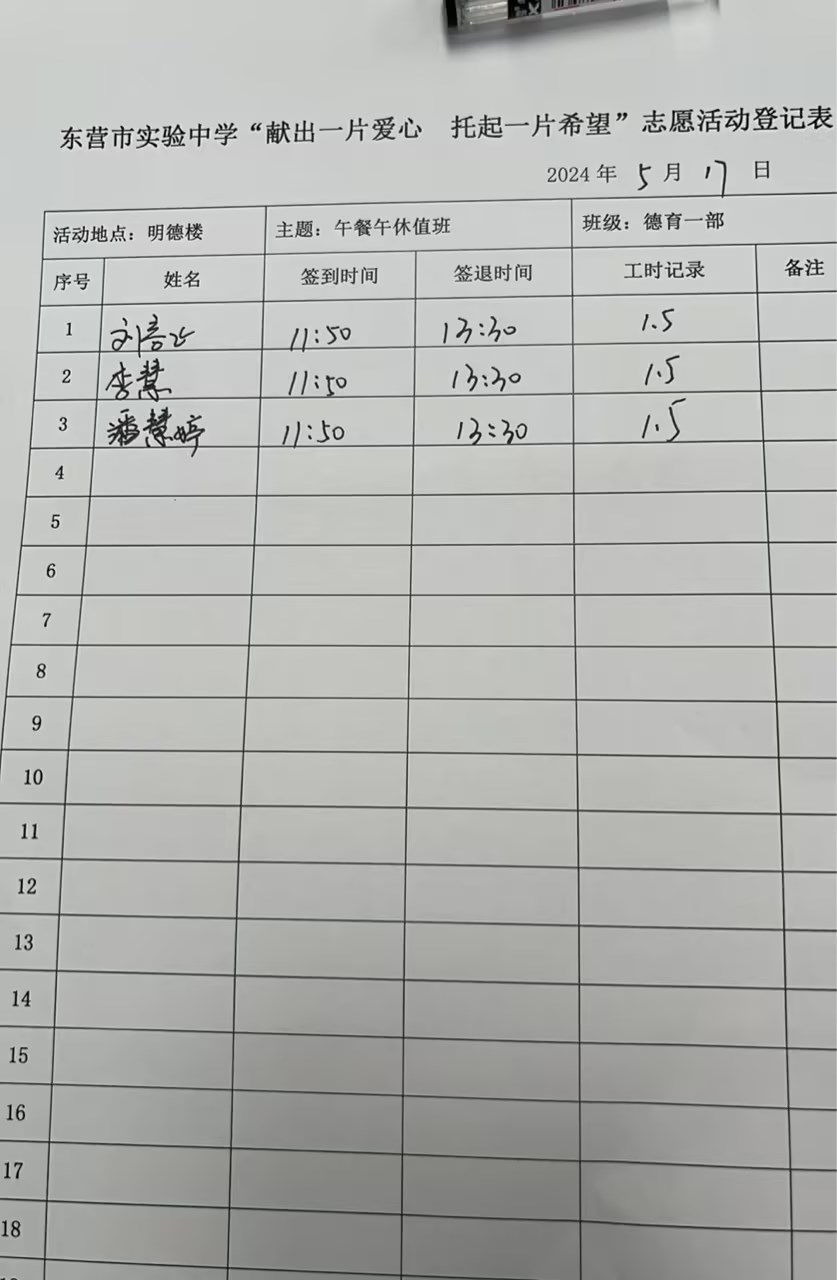 东营市实验中学“献出一片爱心 托起一片希望”志愿活动登记表
2024 年 5 月 17 日
活动地点：明德楼 主题：午餐午休值班 班级：德育一部
序号 姓名 签到时间 签退时间 工时记录 备注
1 刘 11:50 13:30 1.5
2 李慧 11:50 13:30 1.5
3 潘慧婷 11:50 13:30 1.5
4
5
6
7
8
9
10
11
12
13
14
15
16
17
18